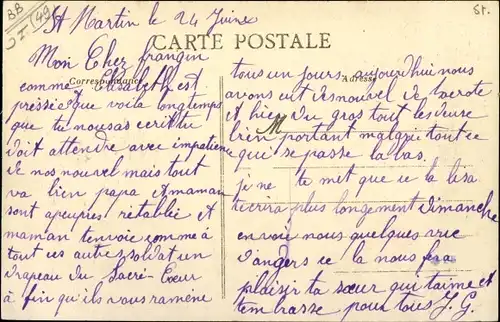 BB
J 49
St.
St Martin le 24 Juine
CARTE POSTALE
Correspondance
Adresse
M
Mon Cher frangin
comme Elisabeth est
pressée que voila longtemps
que tu nousas ecrit tu
doit attendre avec impatience
de nos nouvel mais tout
va bien papa et maman
sont apeupres rétablie et
maman tenvoie comme à
tout ces autre soldat un
Drapeau du Sacré-Cœur
à fin qu'ils vous raméne
tous un jours aujourd'hui nous
avons eut des nouvel de
et hier du gros tout les deuse
bien portant malgré tout ce
qui se passe la bas.
je ne te met que ce la lisa
tecrira plus longement dimanche
envoie nous quelques
d'angers ce la nous fera
plaisir ta sœur qui taime et
tembrasse pour tous J. G.